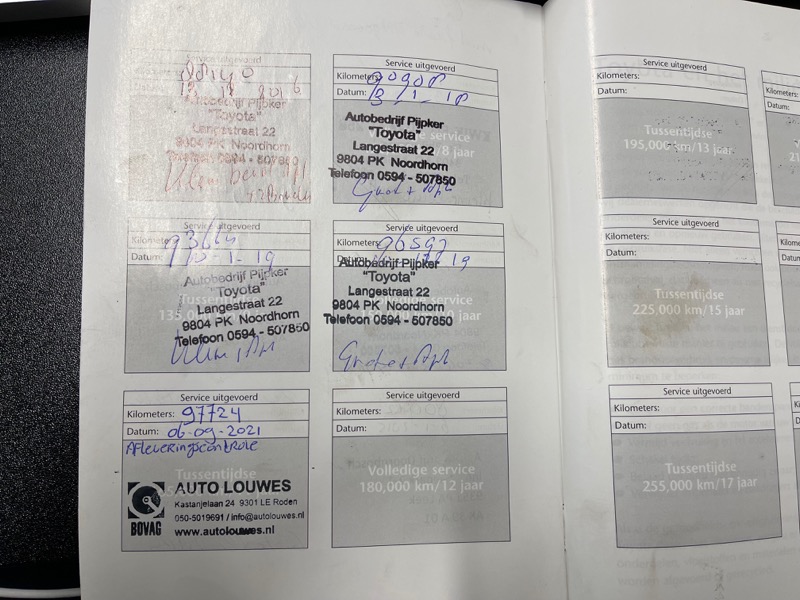 Service uitgevoerd
Autobedrijf Pijpker
"Toyota"
Langestraat 22
9804 PK Noordhorn
Telefoon 0594 - 507850
Service uitgevoerd
Kilometers:
Datum: 1 - 18
Autobedrijf Pijpker
"Toyota"
service
Langestraat 22
/8 jaar
9804 PK Noordhorn
Telefoon 0594 - 507850
Service uitgevoerd
Kilometers:
Datum:
Tussentijdse
195,000 km/13 jaar
Service uitgevoerd
Kilometers: 93664
Datum: 10-1-19
Autobedrijf Pijpker
"Toyota"
Langestraat 22
9804 PK Noordhorn
Telefoon 0594 - 507850
Service uitgevoerd
96597
19
Autobedrijf Pijpker
"Toyota"
Langestraat 22
service
9804 PK Noordhorn
jaar
Telefoon 0594 - 507850
Service uitgevoerd
Kilometers:
Datum:
Tussentijdse
225,000 km/15 jaar
Service uitgevoerd
Kilometers: 97724
Datum: 06-09-2021
AFLEVERINGSCONTROLE
Tussentijdse
AUTO LOUWES
Kastanjelaan 24 9301 LE Roden
050-5019691 / info@autolouwes.nl
BOVAG www.autolouwes.nl
Service uitgevoerd
Kilometers:
Datum:
Volledige service
180,000 km/12 jaar
Service uitgevoerd
Kilometers:
Datum:
Tussentijdse
255,000 km/17 jaar